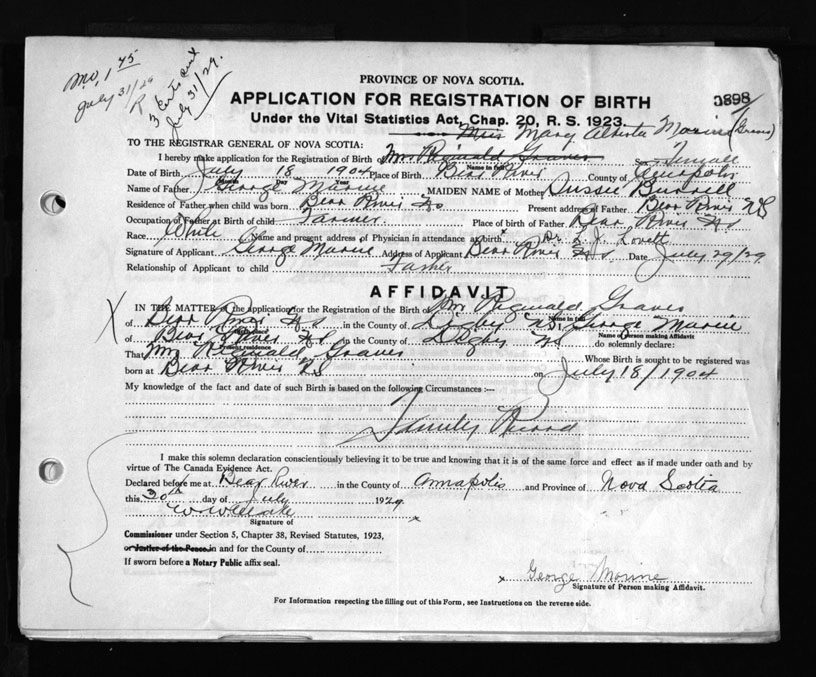 Mo, 1 75
July 31/29
3 Certs sent
July 31/29.
PROVINCE OF NOVA SCOTIA.
APPLICATION FOR REGISTRATION OF BIRTH
3898
Under the Vital Statistics Act, Chap. 20, R. S. 1923.
Miss Mary Alberta Morine (Graves)
TO THE REGISTRAR GENERAL OF NOVA SCOTIA:
I hereby make application for the Registration of Birth of Mr. Reginald Graves Sex Female
Name in full
Date of Birth July 18 1904 Place of Birth Bear River County of Annapolis
Month Day Year
Name of Father George Morine MAIDEN NAME of Mother Burrell
Residence of Father when child was born Bear River NS Present address of Father Bear River NS
Occupation of Father at Birth of child Farmer Place of birth of Father Bear River NS
Race White Name and present address of Physician in attendance at birth Dr. L. J. Lovett
Signature of Applicant George Morine Address of Applicant Bear River NS Date July 29/29
Relationship of Applicant to child Father
AFFIDAVIT
IN THE MATTER of the Application for the Registration of the Birth of Mr Reginald Graves
Name in full
of Bear River NS in the County of Digby NS George Morine
Name of Person making Affidavit
of Bear River NS in the County of Digby NS do solemnly declare:
Present residence
That Mr Reginald Graves Whose Birth is sought to be registered was
born at Bear River NS on July 18/1904
My knowledge of the fact and date of such Birth is based on the following Circumstances :—
Family Record
I make this solemn declaration conscientiously believing it to be true and knowing that it is of the same force and effect as if made under oath and by
virtue of The Canada Evidence Act.
Declared before me at Bear River in the County of Annapolis and Province of Nova Scotia
this 30th day of July 1929
Signature of
Commissioner under Section 5, Chapter 38, Revised Statutes, 1923,
or Justice of the Peace in and for the County of
If sworn before a Notary Public affix seal.
x George Morine
Signature of Person making Affidavit.
For Information respecting the filling out of this Form, see Instructions on the reverse side.